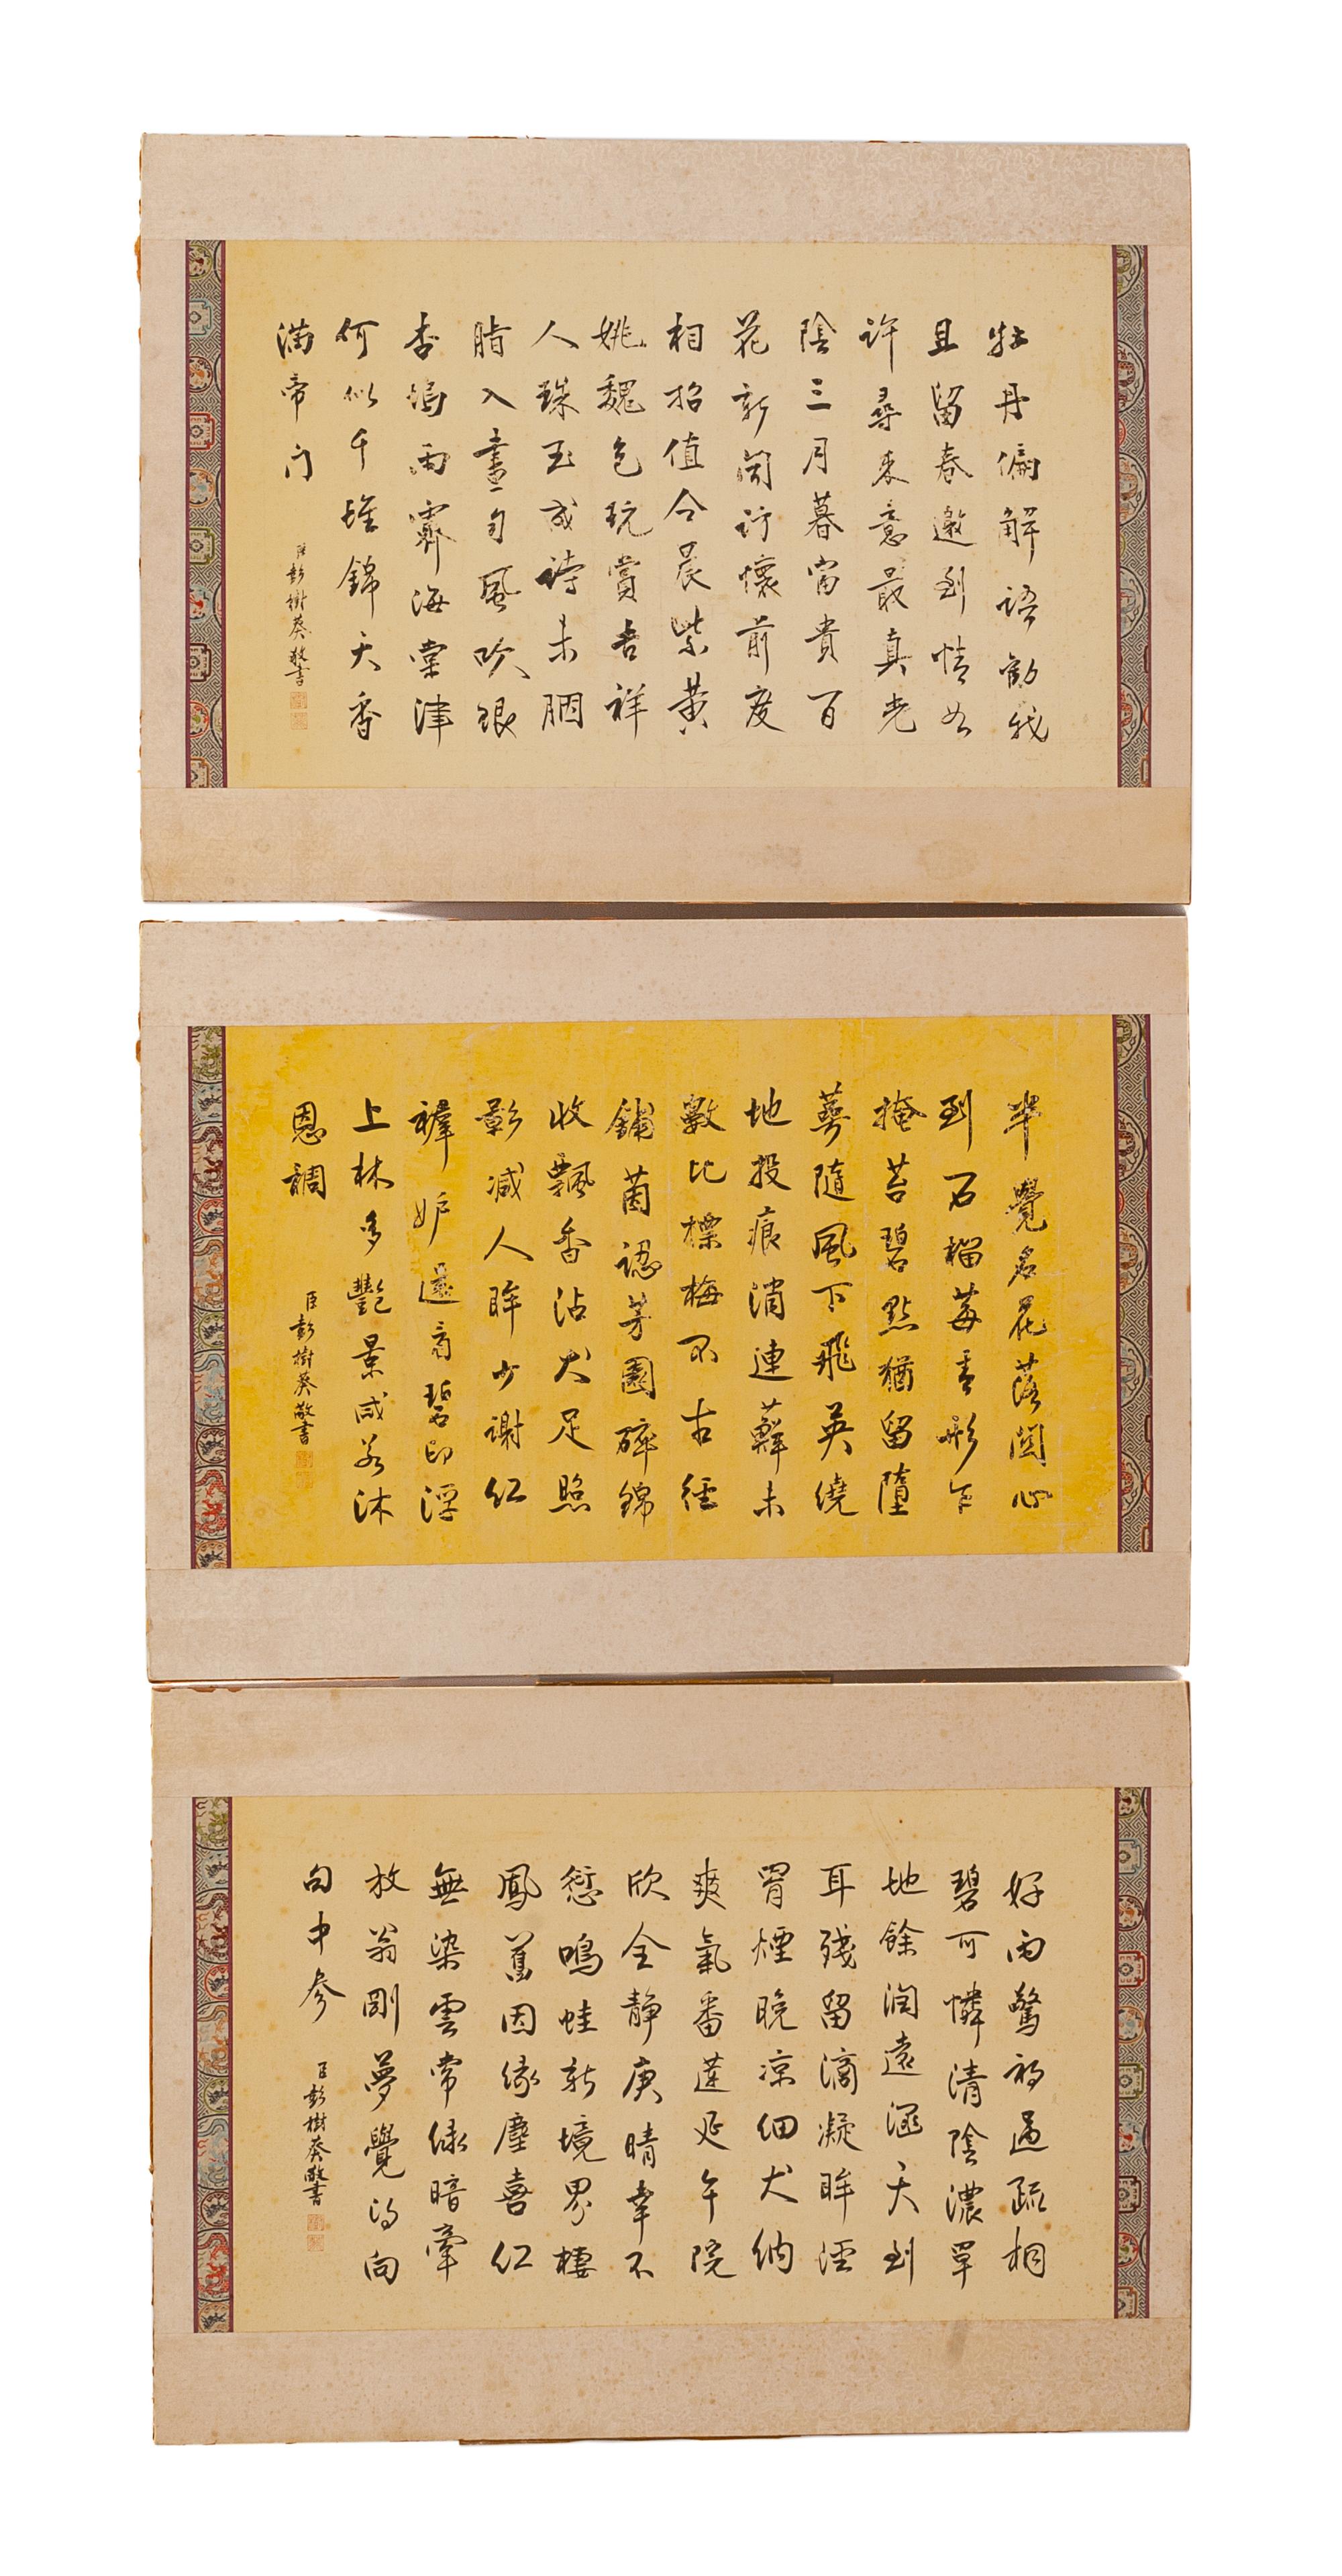 牡丹偏解語勸我
且留春邀到情如
許尋來意最真光
陰三月暮富貴百
花新開訝懷前度
相招值令辰紫黃
姚魏色玩賞吉祥
人珠玉成詩未胭
脂入畫勻風吹銀
杏塢雨霽海棠津
何似千堆錦天香
滿帝门
臣彭樹葵敬書
半覺名花落關心
到石榴莓青形乍
掩苔碧點猶留墮
萼隨風下飛英繞
地投痕消連蘚未
數比標梅不古徑
鋪茵認芳園碎錦
收飄香沾犬足照
影减人眸少謝紅
裙妒還齊碧印浮
上林多艷景咸若沐
恩調
臣彭樹葵敬書
好雨驚初過疏桐
碧可憐清陰濃罩
地餘潤遠涵天到
耳殘留滴凝眸淫
罥煙晚凉細犬納
爽氣番蓮延午院
欣全静庚晴幸不
愆鳴蛙新境界棲
鳳舊因緣塵喜紅
無染雲常綠暗牽
放翁剛夢覺得向
句中參
臣彭樹葵敬書